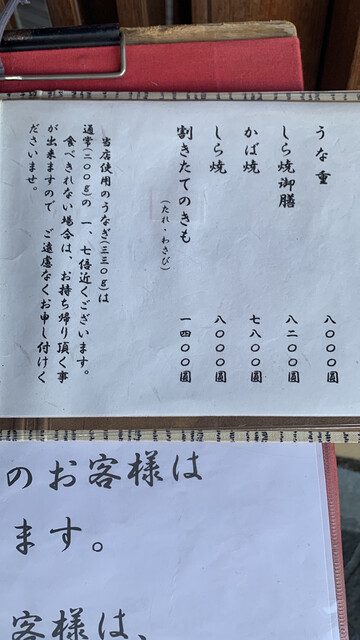 うな重　八〇〇〇圓
しら焼御膳　八二〇〇圓
かば焼　七八〇〇圓
しら焼　八〇〇〇圓
割きたてのきも　一四〇〇圓
(たれ・わさび)
当店使用のうなぎ(三三〇g)は
通常(二〇〇g)の一、七倍近くございます。
食べきれない場合は、お持ち帰り頂く事
が出来ますので　ご遠慮なくお申し付けく
ださいませ。
のお客様は
ます。
客様は、